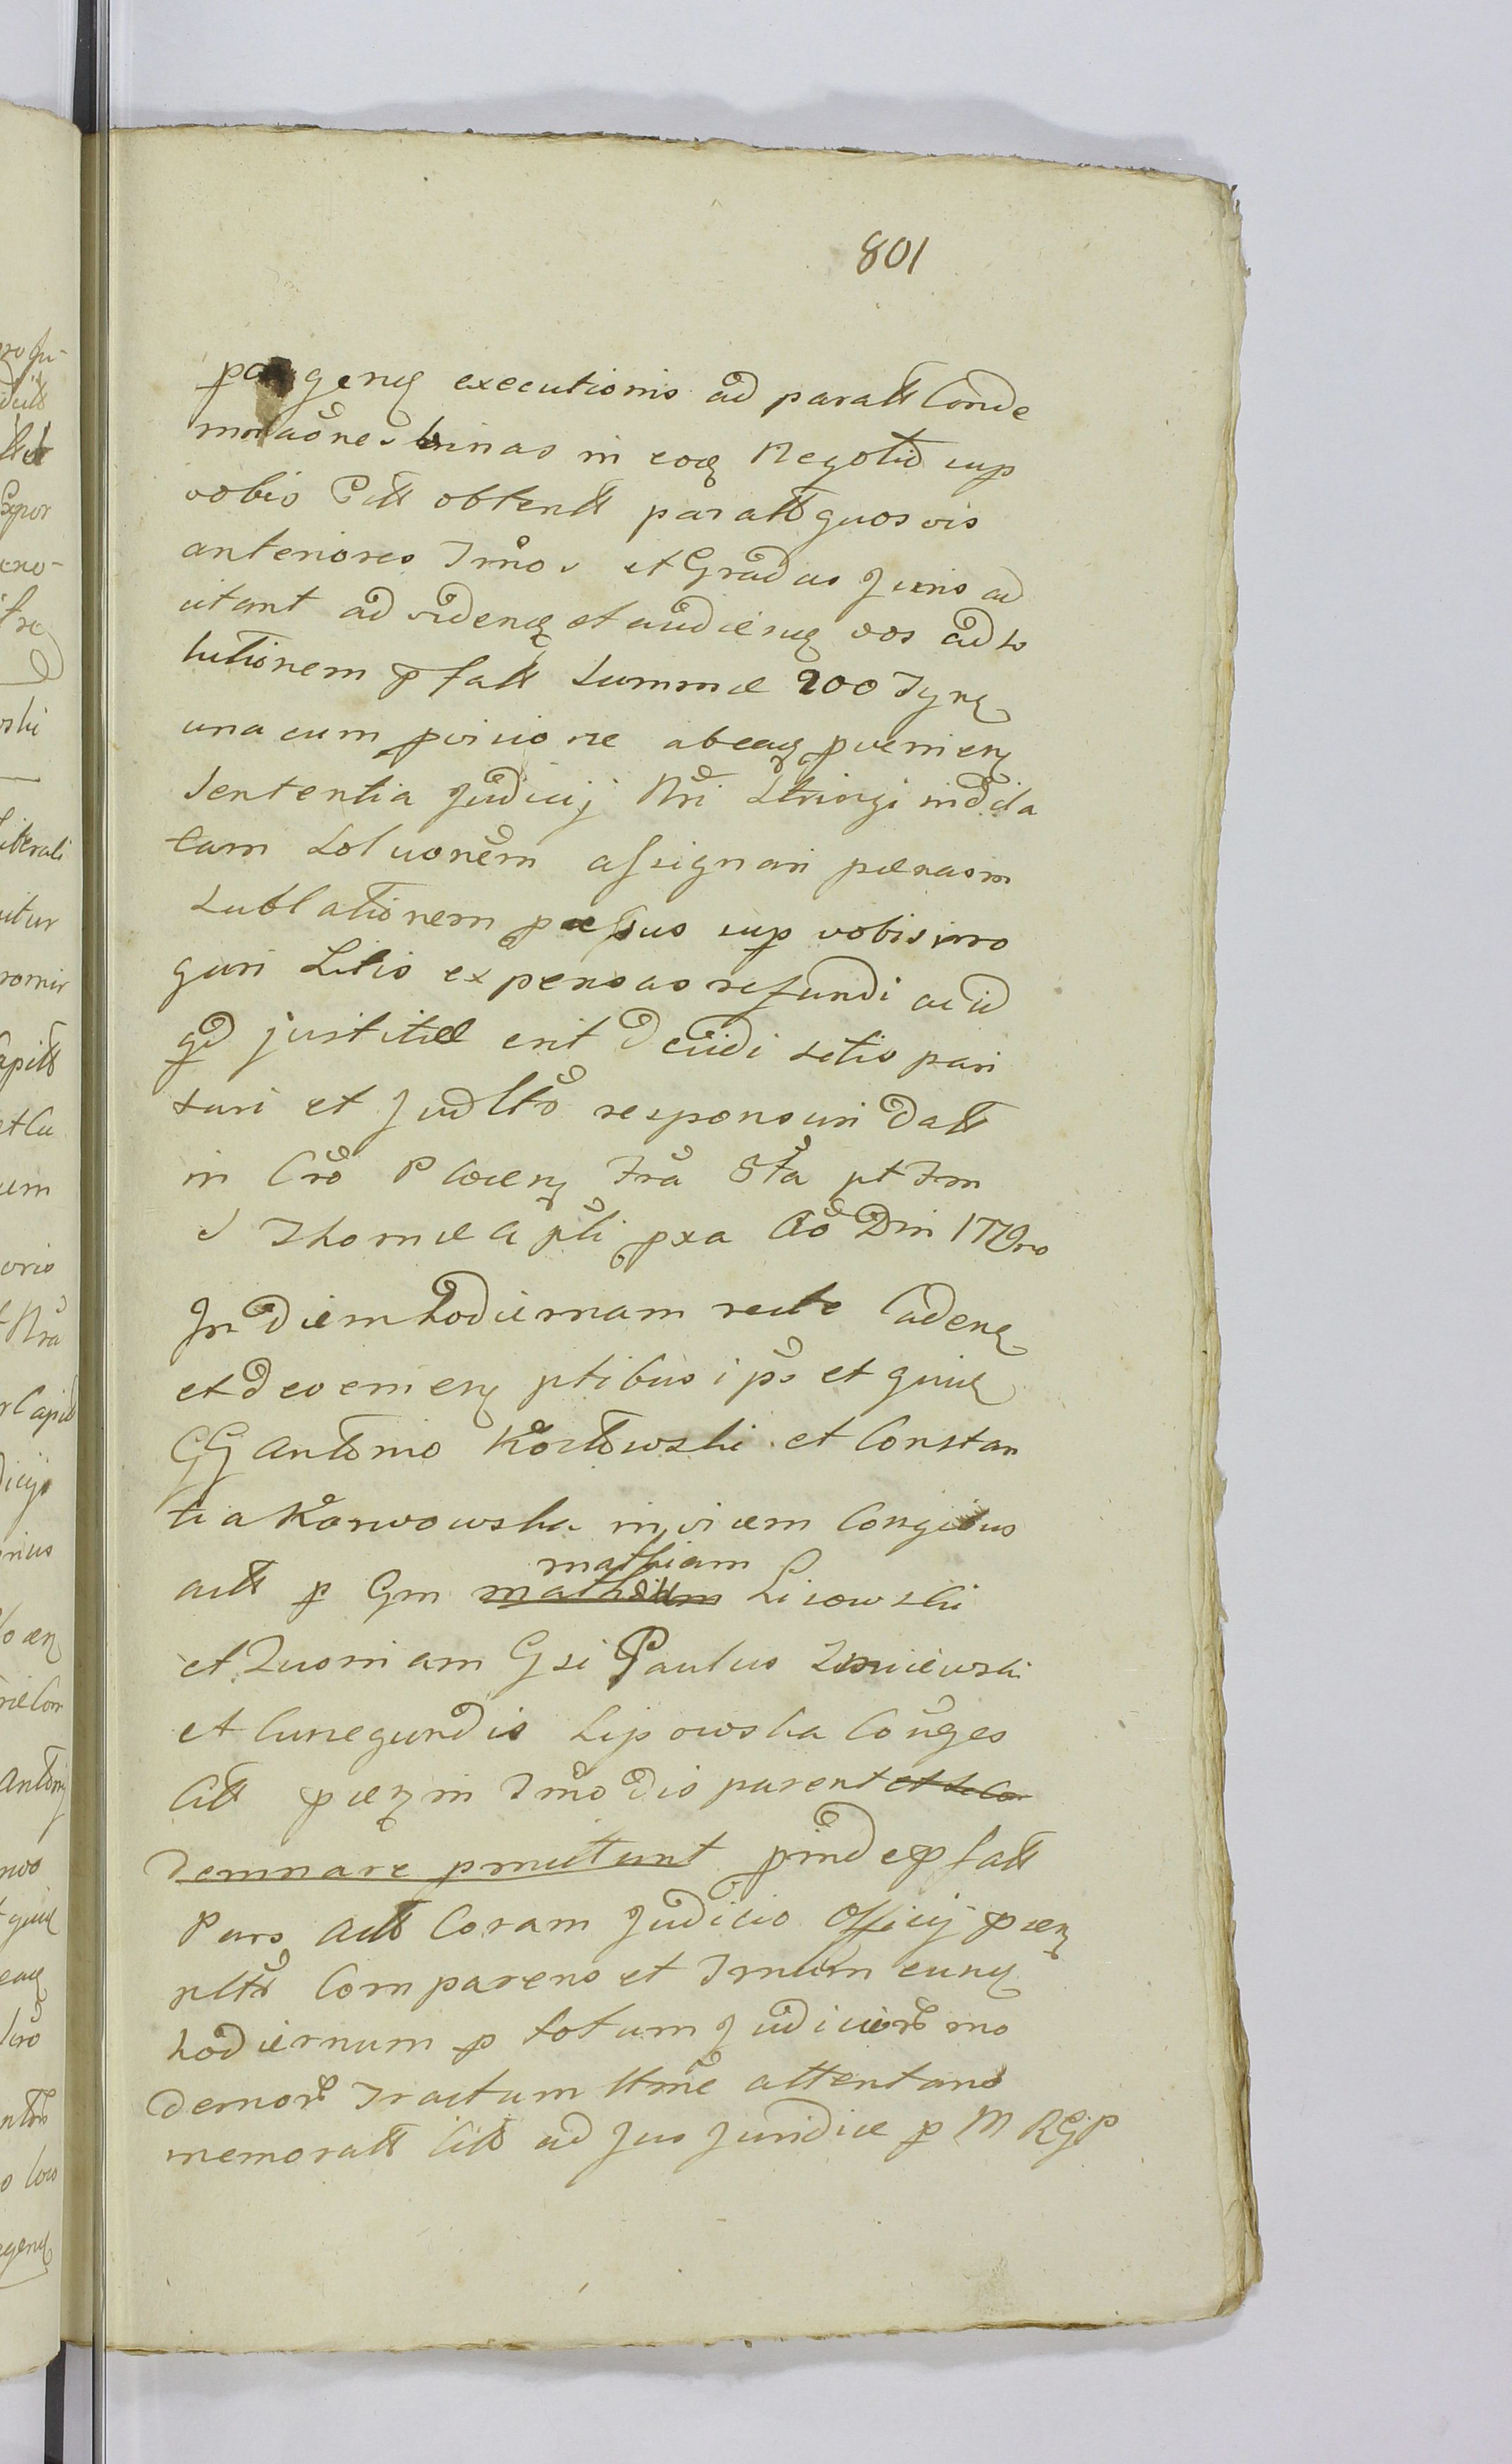 801
executionis ad paratt Conde
mnaōnes binas in eoq Negotio sup
vobis Citt obtentt paratt quosvis
anteriores Tmōs et Gradus Juris ad
citant ad videnq et audienq vos ad so
lutionem pfatt Summæ 200 Tynq
una cum pvisione ab eaq pvenienq
Sententia Judicij Nri Stringi indeda
tam Soluonem assignari pænasin
Sublationem pæssus sup vobis irro
gari Litis expensas refundi ac id
qd justitiæ erit decidi setis pari
turi et Judltr responsuri Datt
in Cro Plocen Fra 5ta pt Fm
S Thomæ Apli pxa Ao Dni 1779no
In diem hodiernam recte Cadenq
et devenienq ptibus ips et quiq
GG Antonio Kozłowski et Constan
tia Karwowska invicem Congibus
actt p Gm mathiam
mathiam Lisowski
et Quoniam Gsi Paulus Zmiewski
et Cunegundis Lipowska Conges
Citt pæn in Tmo dio parent et se Co
demnare pmittunt pinde pfatt
Pars Actt Coram Judicio Officij pæn
pltr Comparens et Tmum eunq
hodiernum p totum Judiciorum mo
dernor Tractum ltme attentans
memoratt Citt ad Jus Juridice p M RGP